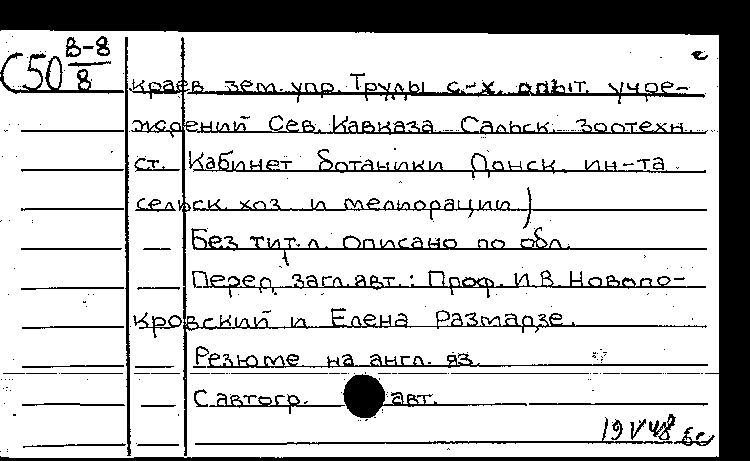 С50 В-8/8
краев. зем. упр. Труды с.-х. опыт. учре-
ждений Сев. Кавказа Сальск. зоотехн.
ст. Кабинет ботаники Донск. ин-та
сельск. хоз. и мелиорации)
Без тит. л. Описано по обл.
Перед загл. авт.: Проф. И.В. Новопо-
кровский и Елена Размарзе.
Резюме на англ. яз.
С автогр. авт.
19 V 48